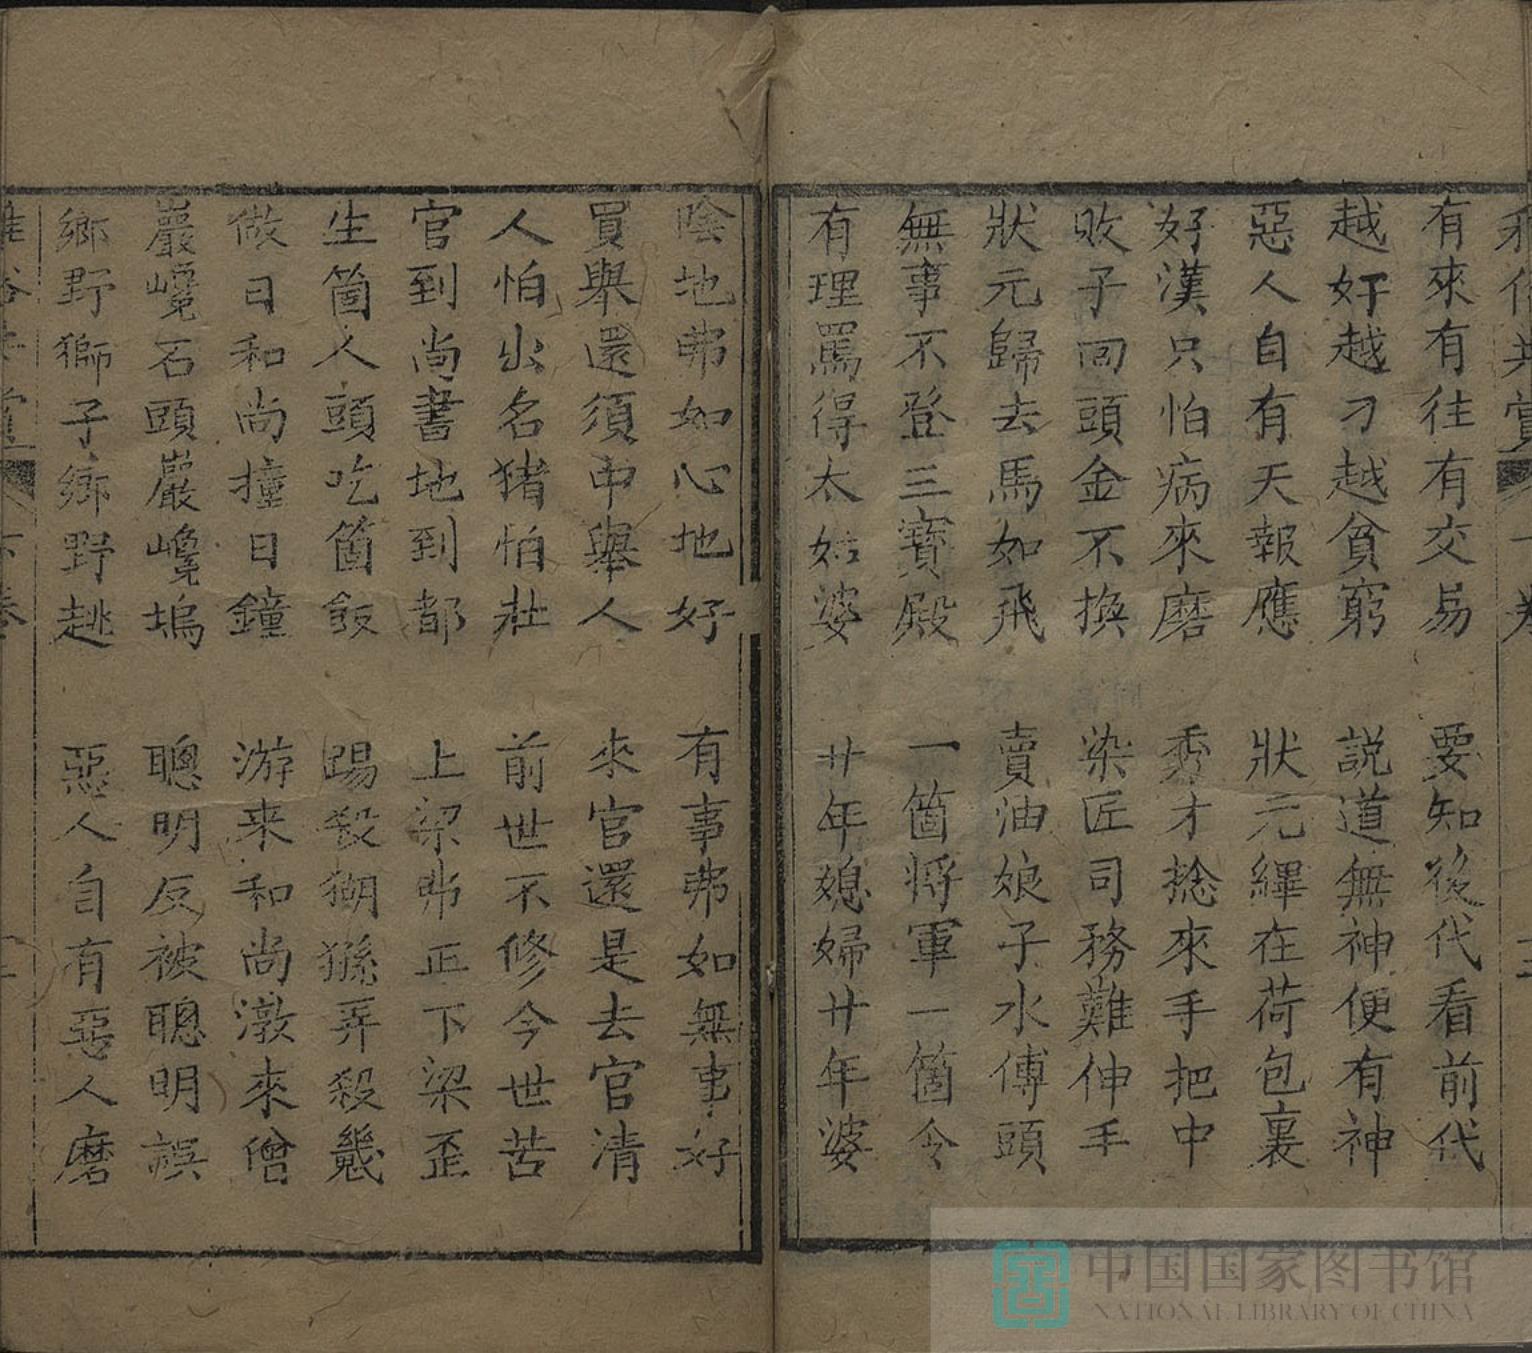 有來有往有交易　要知後代看前代
越奸越刁越貧窮　説道無神便有神
惡人自有天報應　狀元縪在荷包裏
好漢只怕病來磨　秀才捻來手把中
敗子囘頭金不換　染匠司務難伸手
狀元歸去馬如飛　賣油娘子水傅頭
無事不登三寳殿　一箇將軍一箇令
有理罵得太姑婆　廿年媳婦廿年婆
陰地弗如心地好　有事弗如無事好
買舉還須中舉人　來官還是去官清
人怕出名猪怕壯　前世不修今世苦
官到尚書地到都　上梁弗正下梁歪
生箇人頭吃箇飯　踢殺猢猻弄殺鷄
做日和尚撞日鐘　游来和尚潡來僧
巖巉石頭巖巉塢　聰明反被聰明誤
鄉野獅子鄉野跳　惡人自有惡人磨
中国国家图书馆
NATIONAL LIBRARY OF CHINA